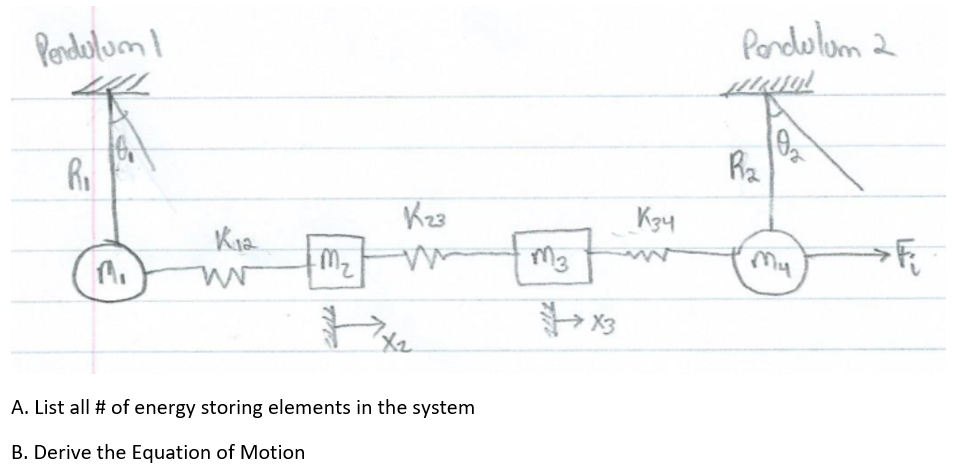 Pendulum 1
Pendulum 2
θ1
R1
θ2
R2
K12
K23
K34
m1
m2
m3
m4
Fi
x2
x3
A. List all # of energy storing elements in the system
B. Derive the Equation of Motion